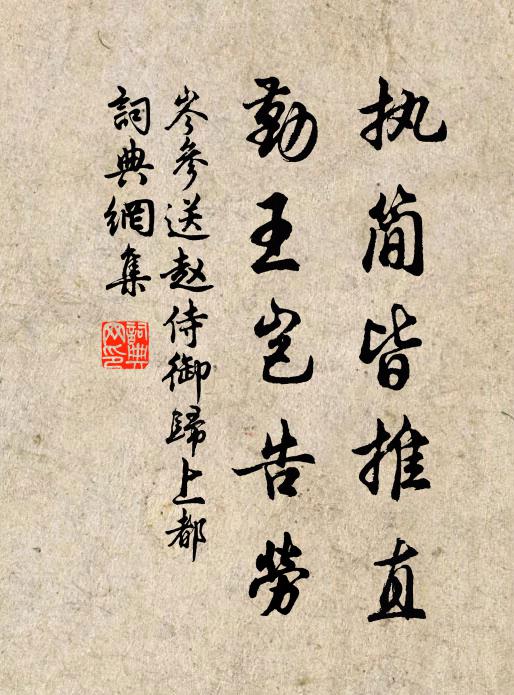 执简皆推直
勤王岂告劳
岑参送赵侍御歸上都
詞典網集
詞典
网印